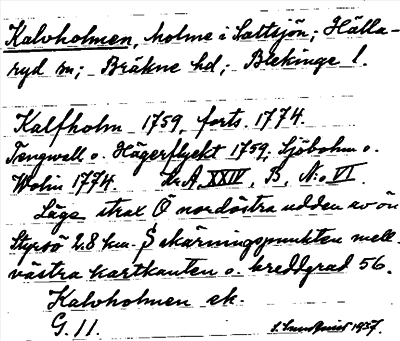 Kalvholmen, holme i Saltsjön; Hälla-
ryd sn; Bräkne hd; Blekinge l.
Kalfholm 1759, forts. 1774.
Tengwall o. Hägerflycht 1759. Sjöbohm o.
Wolin 1774. Kr.A. XXIV, B, N:o VI.
Läge strax Ö nordöstra udden av ön
Styrsö 2.8 km. S skärningspunkten mell.
västra kartkanten o. breddgrad 56.
Kalvholmen ek.
G. 11.
1937.